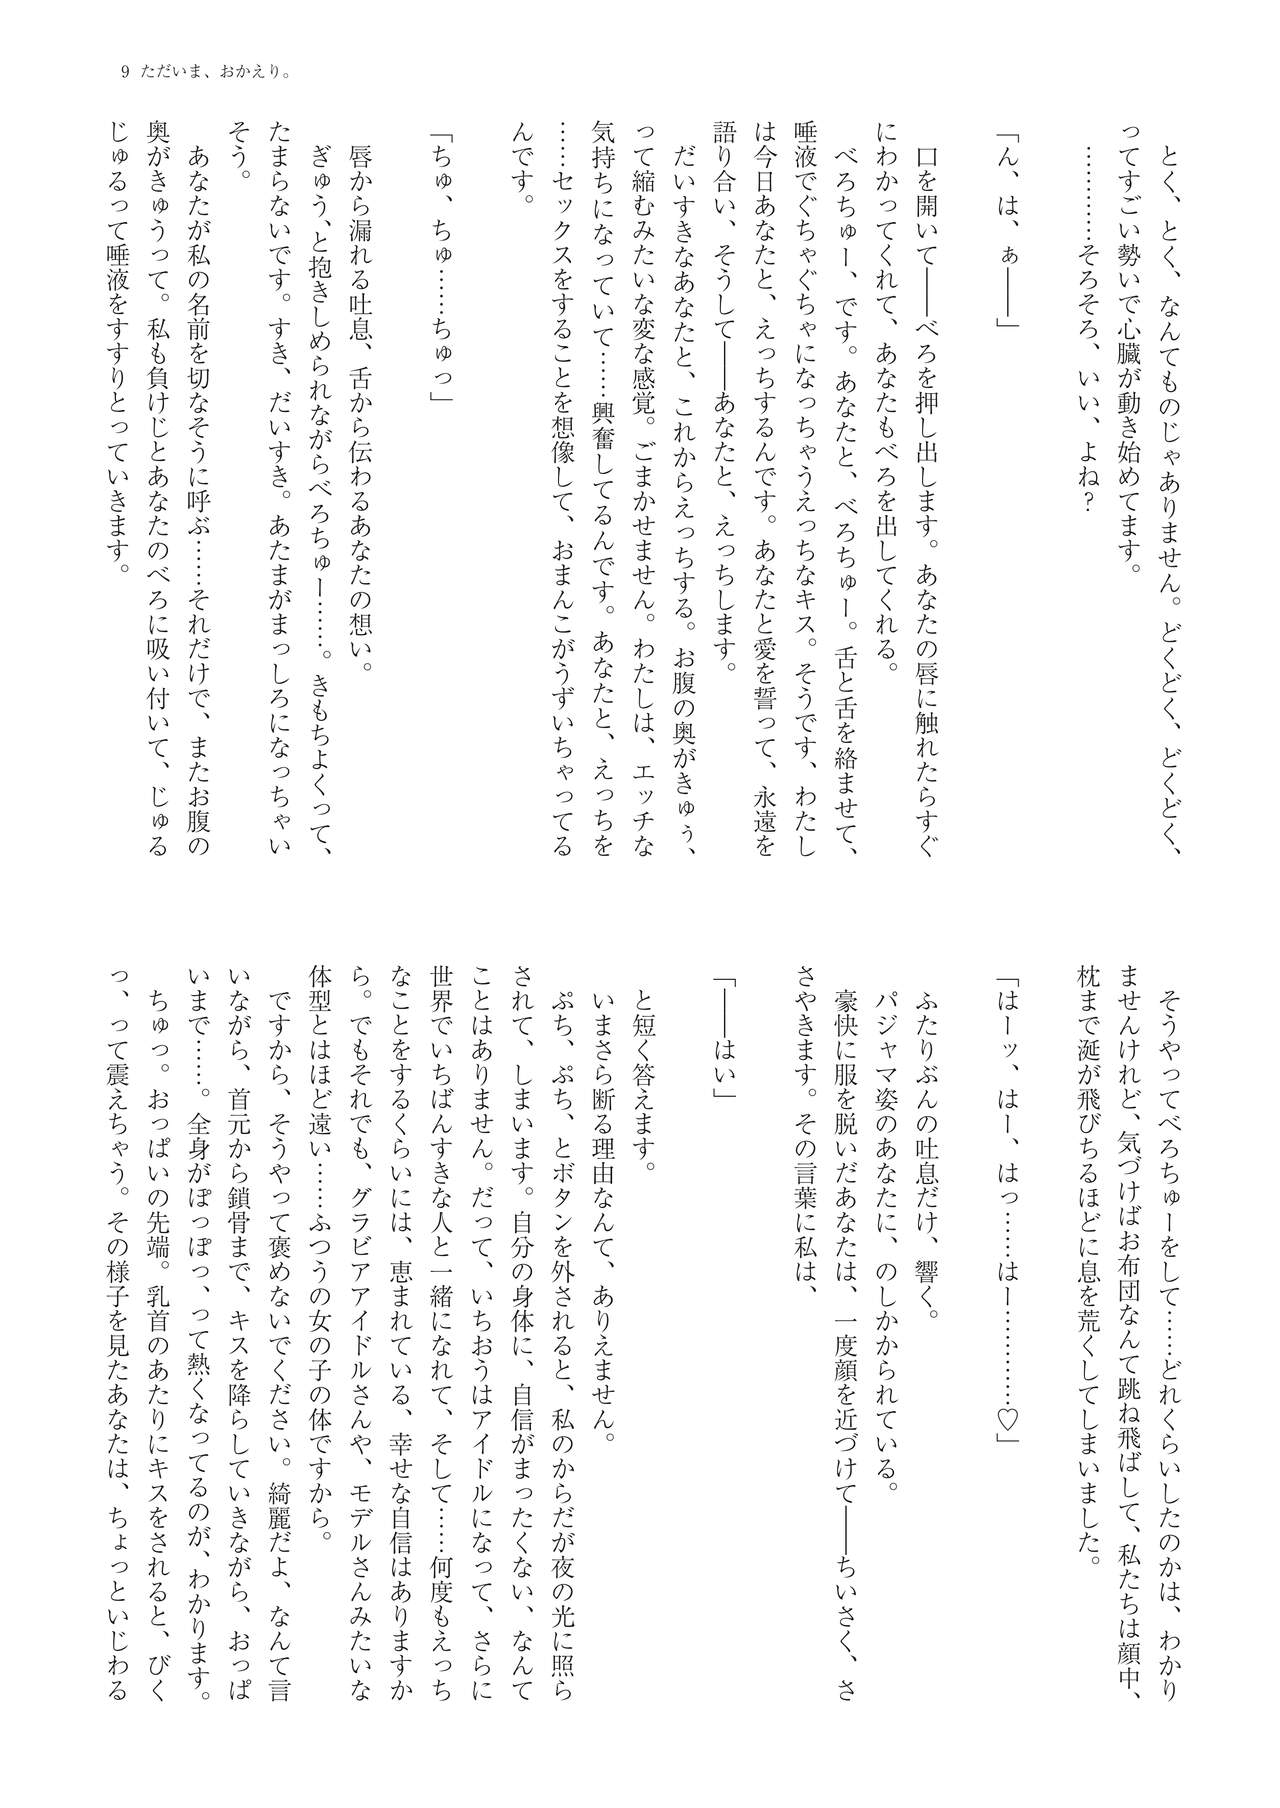 9 ただいま、おかえり。
とく、とく、なんてものじゃありません。どくどく、どくどく、
ってすごい勢いで心臓が動き始めてます。
…………そろそろ、いい、よね？
「ん、は、ぁ――」
口を開いて――べろを押し出します。あなたの唇に触れたらすぐ
にわかってくれて、あなたもべろを出してくれる。
べろちゅー、です。あなたと、べろちゅー。舌と舌を絡ませて、
唾液でぐちゃぐちゃになっちゃうえっちなキス。そうです、わたし
は今日あなたと、えっちするんです。あなたと愛を誓って、永遠を
語り合い、そうして――あなたと、えっちします。
だいすきなあなたと、これからえっちする。お腹の奥がきゅぅ、
って縮むみたいな変な感覚。ごまかせません。わたしは、エッチな
気持ちになっていて……興奮してるんです。あなたと、えっちを
……セックスをすることを想像して、おまんこがうずいちゃってる
んです。
「ちゅ、ちゅ……ちゅっ」
唇から漏れる吐息、舌から伝わるあなたの想い。
ぎゅう、と抱きしめられながらべろちゅー……。きもちよくって、
たまらないです。すき、だいすき。あたまがまっしろになっちゃい
そう。
あなたが私の名前を切なそうに呼ぶ……それだけで、またお腹の
奥がきゅうって。私も負けじとあなたのべろに吸い付いて、じゅる
じゅるって唾液をすすりとっていきます。
そうやってべろちゅーをして……どれくらいしたのかは、わかり
ませんけれど、気づけばお布団なんて跳ね飛ばして、私たちは顔中、
枕まで涎が飛びちるほどに息を荒くしてしまいました。
「はーッ、はー、はっ……はー…………♡」
ふたりぶんの吐息だけ、響く。
パジャマ姿のあなたに、のしかかられている。
豪快に服を脱いだあなたは、一度顔を近づけて――ちいさく、さ
さやきます。その言葉に私は、
「――はい」
と短く答えます。
いまさら断る理由なんて、ありえません。
ぷち、ぷち、とボタンを外されると、私のからだが夜の光に照ら
されて、しまいます。自分の身体に、自信がまったくない、なんて
ことはありません。だって、いちおうはアイドルになって、さらに
世界でいちばんすきな人と一緒になれて、そして……何度もえっち
なことをするくらいには、恵まれている、幸せな自信はありますか
ら。でもそれでも、グラビアアイドルさんや、モデルさんみたいな
体型とはほど遠い……ふつうの女の子の体ですから。
ですから、そうやって褒めないでください。綺麗だよ、なんて言
いながら、首元から鎖骨まで、キスを降らしていきながら、おっぱ
いまで……。全身がぽっぽっ、って熱くなってるのが、わかります。
ちゅっ。おっぱいの先端。乳首のあたりにキスをされると、びく
っ、って震えちゃう。その様子を見たあなたは、ちょっといじわる